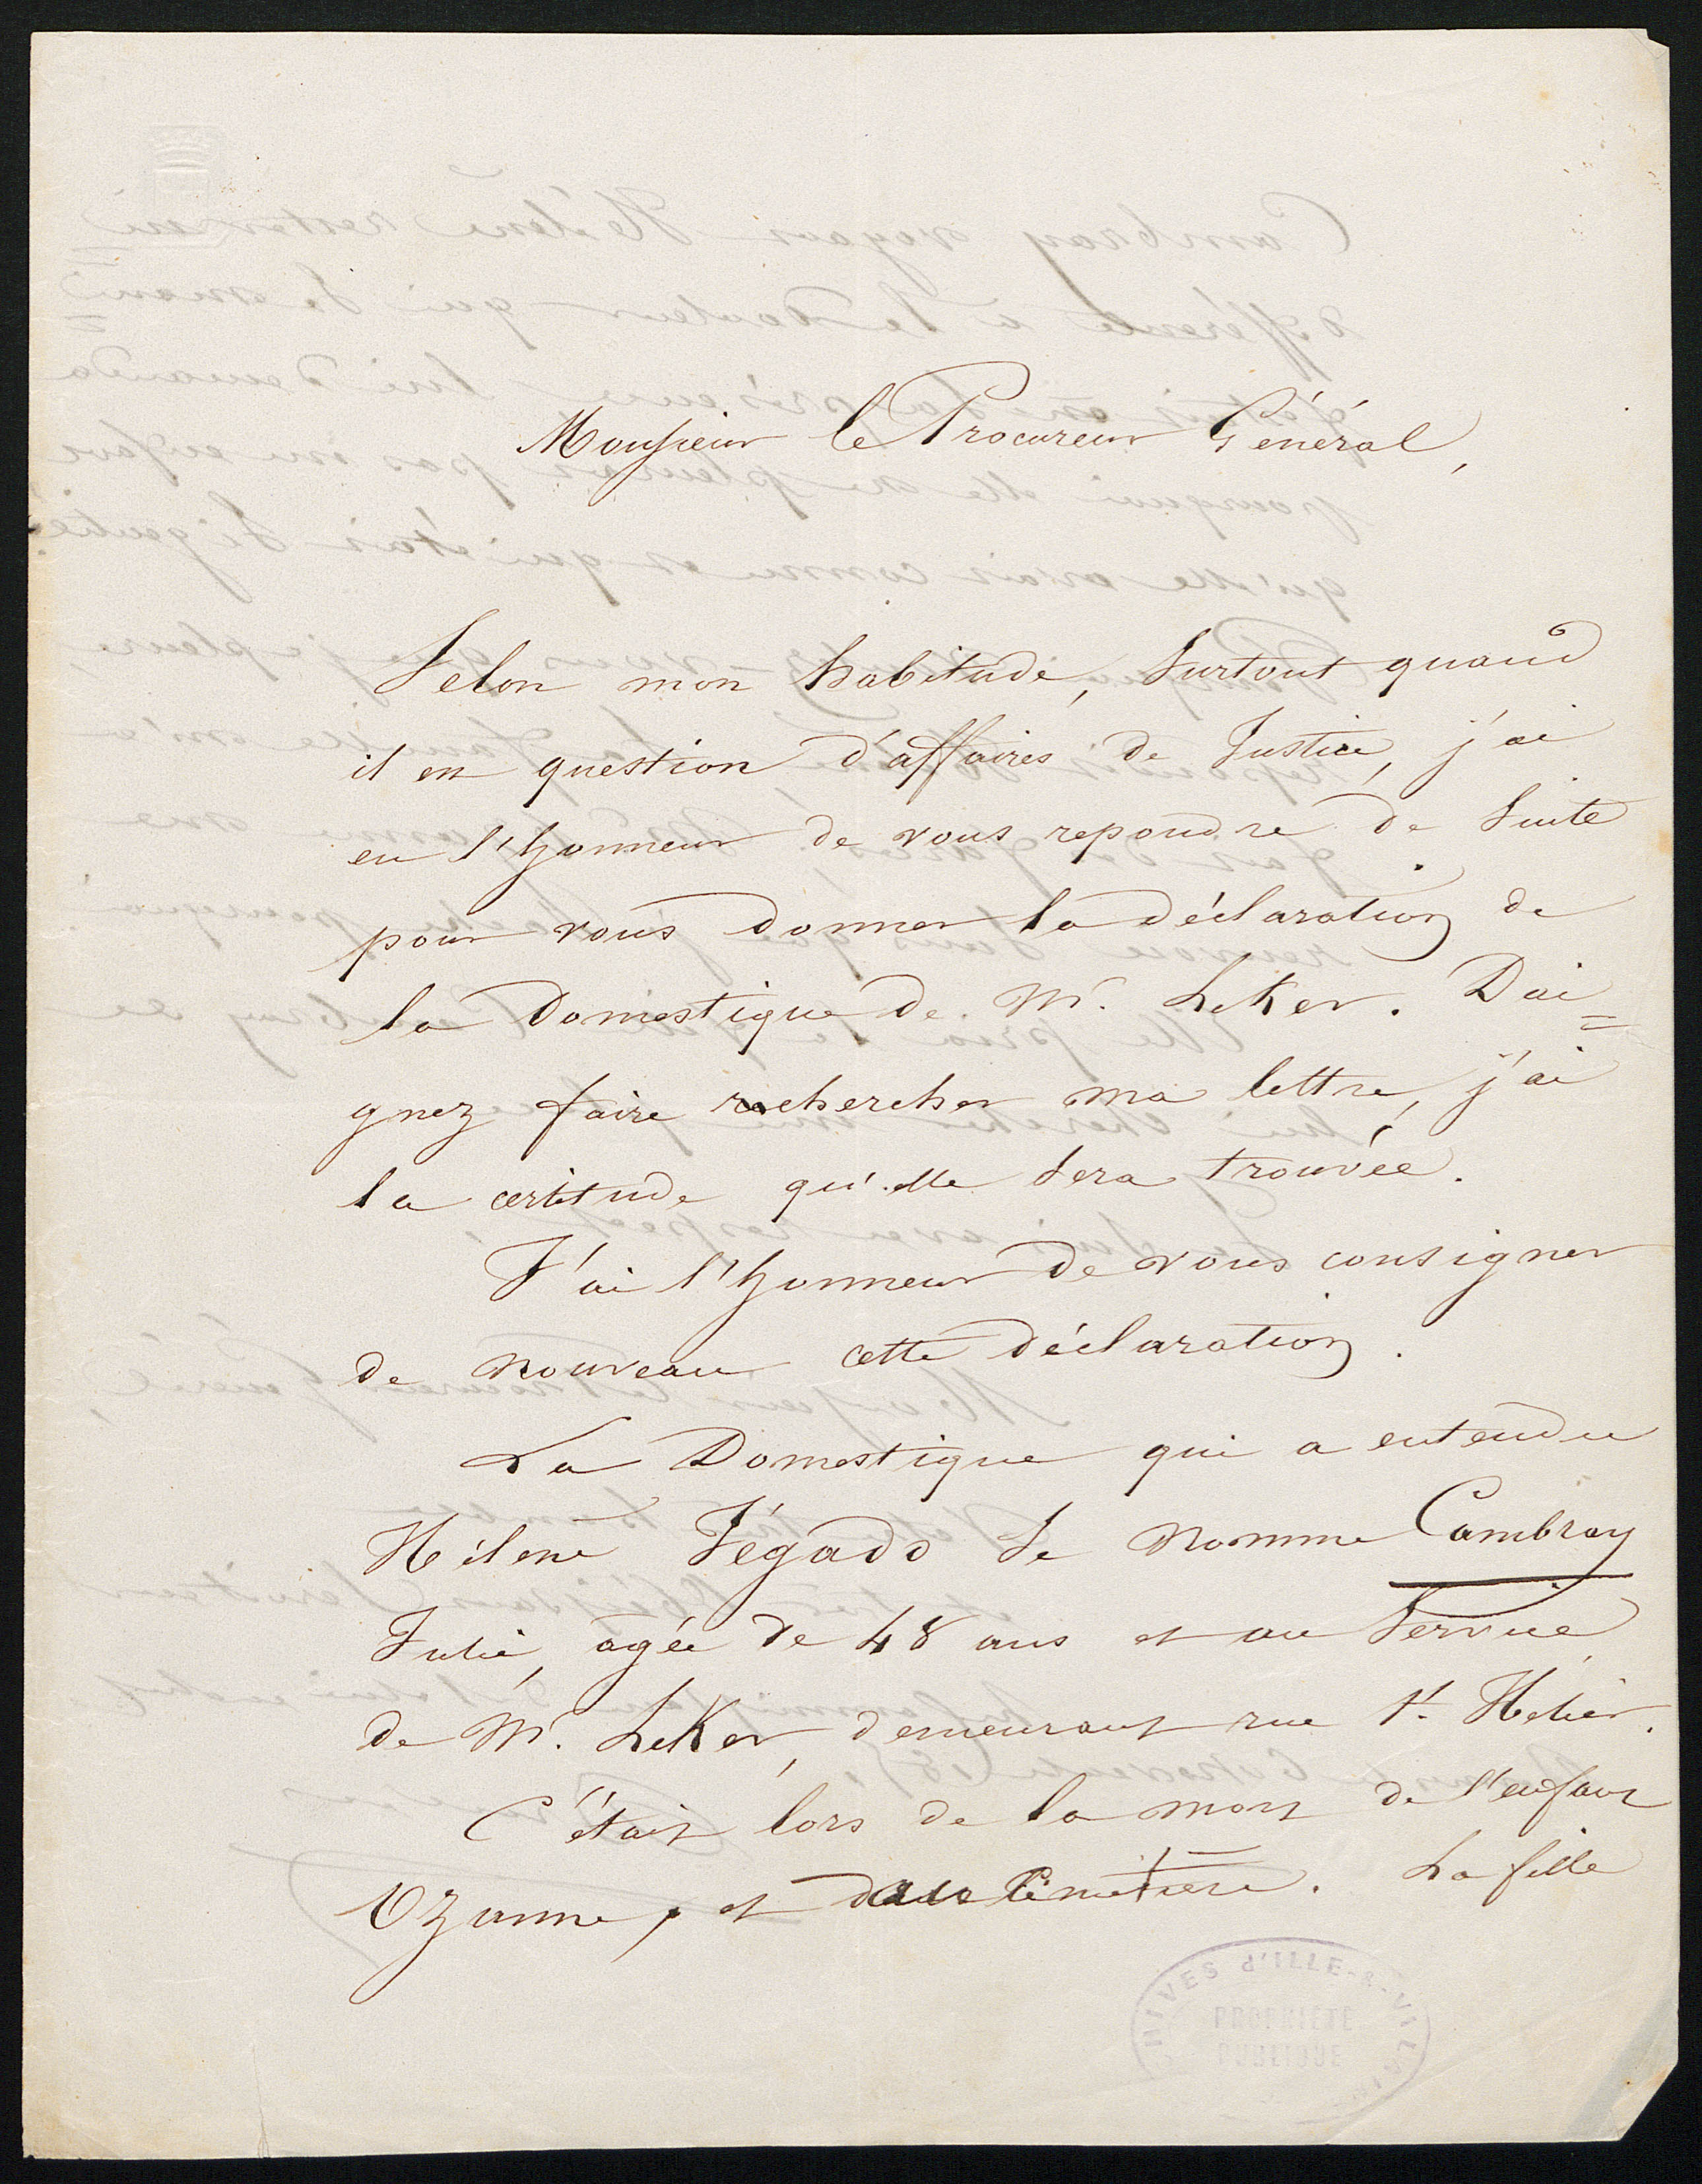 Monsieur le Procureur Général,
Selon mon habitude, surtout quand
il est question d'affaires de Justice, j'ai
eu l'honneur de vous repondre de suite
pour vous donner la déclaration de
la Domestique de Mr. LeKer. Dai=
gnez faire rechercher ma lettre, j'ai
la certitude qu'elle sera trouvée.
J'ai l'honneur de vous consigner
de nouveau cette déclaration.
La Domestique qui a entendu
Hélène Jégado se nomme Cambray
Julie, agée de 48 ans et au service
de Mr. LeKer, demeurant rue St. Helier.
C'était lors de la mort de l'enfant
Ozanne, et dans le cimetière. La fille
ARCHIVES d'ILLE-&-VILAINE
PROPRIETE
PUBLIQUE